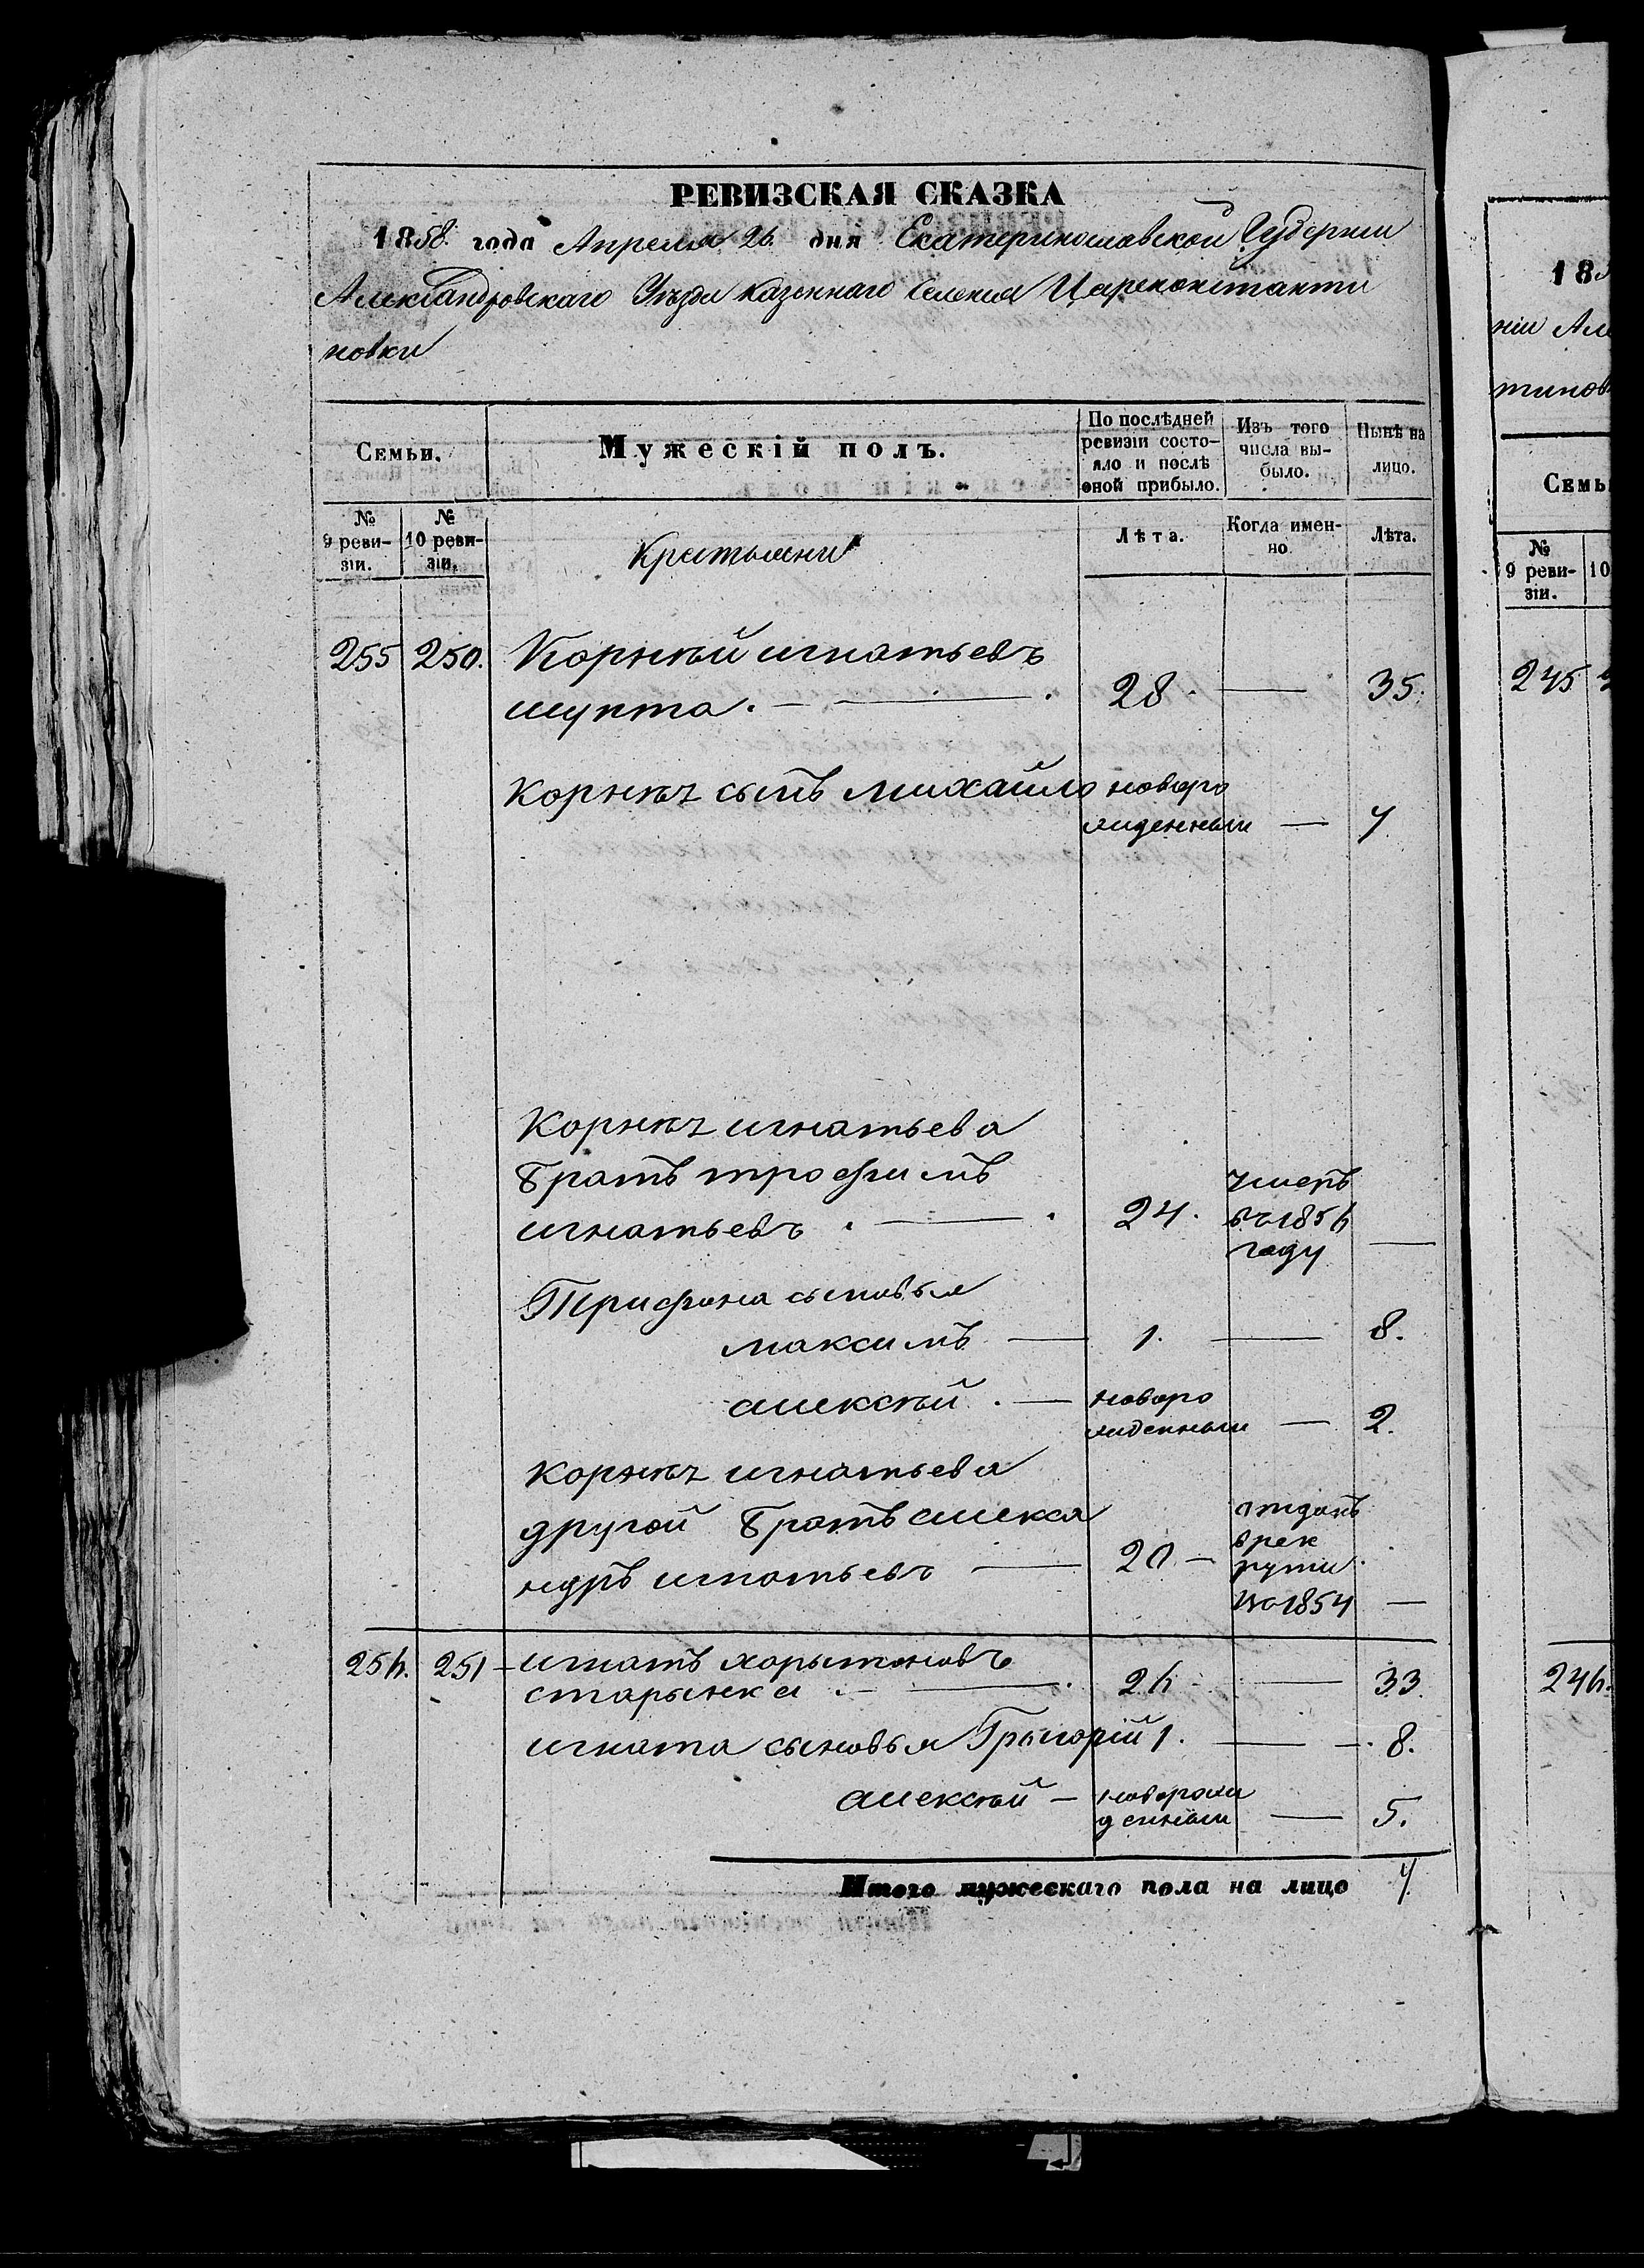 РЕВИЗСКАЯ СКАЗКА
1858. года Апреля 26. дня Екатеринославской Губернии
Александровскаго Уезда казеннаго селения Цареконстанти
новки
Семьи.
Мужескій полъ.
По послѣдней ревизіи состо-
яло и послѣ
оной прибыло.
Изъ того
числа вы-
было.
Нынѣ на
лицо.
№
9 реви-
зіи.
№
10 реви-
зіи.
Крестьяни
Лѣта.
Когда имен-
но
Лѣта.
255 250. Корнѣй игнатьевъ
шупта. — 28. — 35.
Корнѣя сынъ михайло новоро
жденный — 4
Корнѣя игнатьева
братъ трофимъ
игнатьевъ. — 24. умеръ
въ 1856
году —
Трифона сыновья
максимъ — 1. — 8.
алексѣй. — новоро
жденный — 2.
Корнѣя игнатьева
другой братъ алекса
ндръ игнатьевъ — 20 — отданъ
в рек
рути
1854 —
256. 251 игнатъ харытоновъ
старынка — 26 — 33.
игната сыновья Грыгорій 1. — 8.
алексѣй — новорож
денный — 5.
Итого мужескаго пола на лицо 7
185
ніи Але
тинов
Семь
№
9 реви-
зіи.
10
245
246.